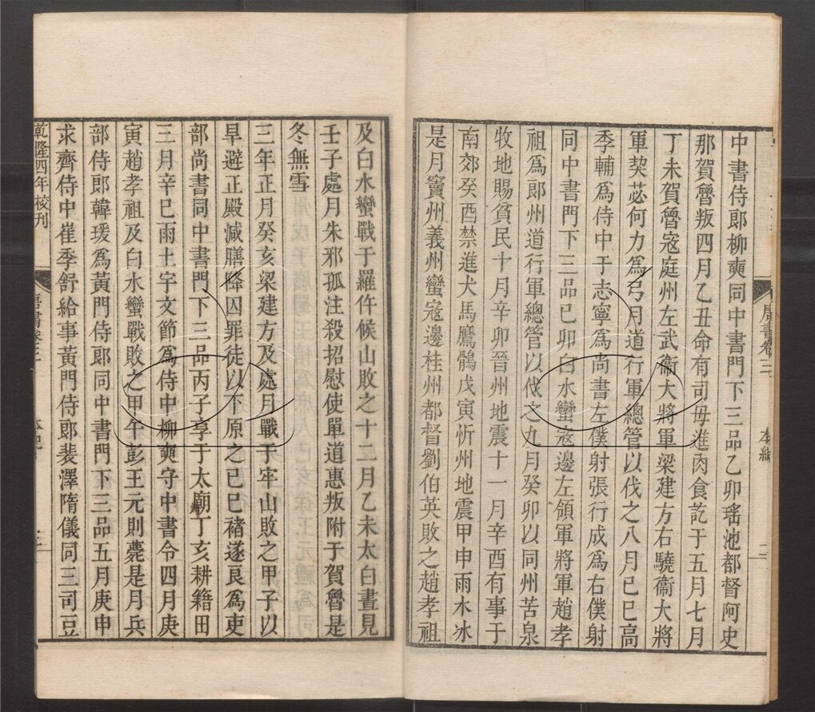 中書侍郎柳奭同中書門下三品乙卯瑤池都督阿史
那賀魯叛四月乙丑命有司毋進肉食訖于五月七月
丁未賀魯寇庭州左武衞大將軍梁建方右驍衞大將
軍契苾何力爲弓月道行軍總管以伐之八月己巳高
季輔爲侍中于志寧爲尚書左僕射張行成爲右僕射
同中書門下三品己卯白水蠻寇邊左領軍將軍趙孝
祖爲郎州道行軍總管以伐之九月癸卯以同州苦泉
牧地賜貧民十月辛卯晉州地震十一月辛酉有事于
南郊癸酉禁進犬馬鷹鶻戊寅忻州地震甲申雨木冰
是月竇州義州蠻寇邊桂州都督劉伯英敗之趙孝祖
唐書卷三
本紀
及白水蠻戰于羅仵候山敗之十二月乙未太白晝見
壬子處月朱邪孤注殺招慰使單道惠叛附于賀魯是
冬無雪
三年正月癸亥梁建方及處月戰于牢山敗之甲子以
旱避正殿減膳降囚罪徒以下原之己巳褚遂良爲吏
部尚書同中書門下三品丙子享于太廟丁亥耕籍田
三月辛巳雨土宇文節爲侍中柳奭守中書令四月庚
寅趙孝祖及白水蠻戰敗之甲午彭王元則薨是月兵
部侍郎韓瑗爲黃門侍郎同中書門下三品五月庚申
求齊侍中崔季舒給事黃門侍郎裴澤隋儀同三司豆
乾隆四年校刊
唐書卷三
本紀